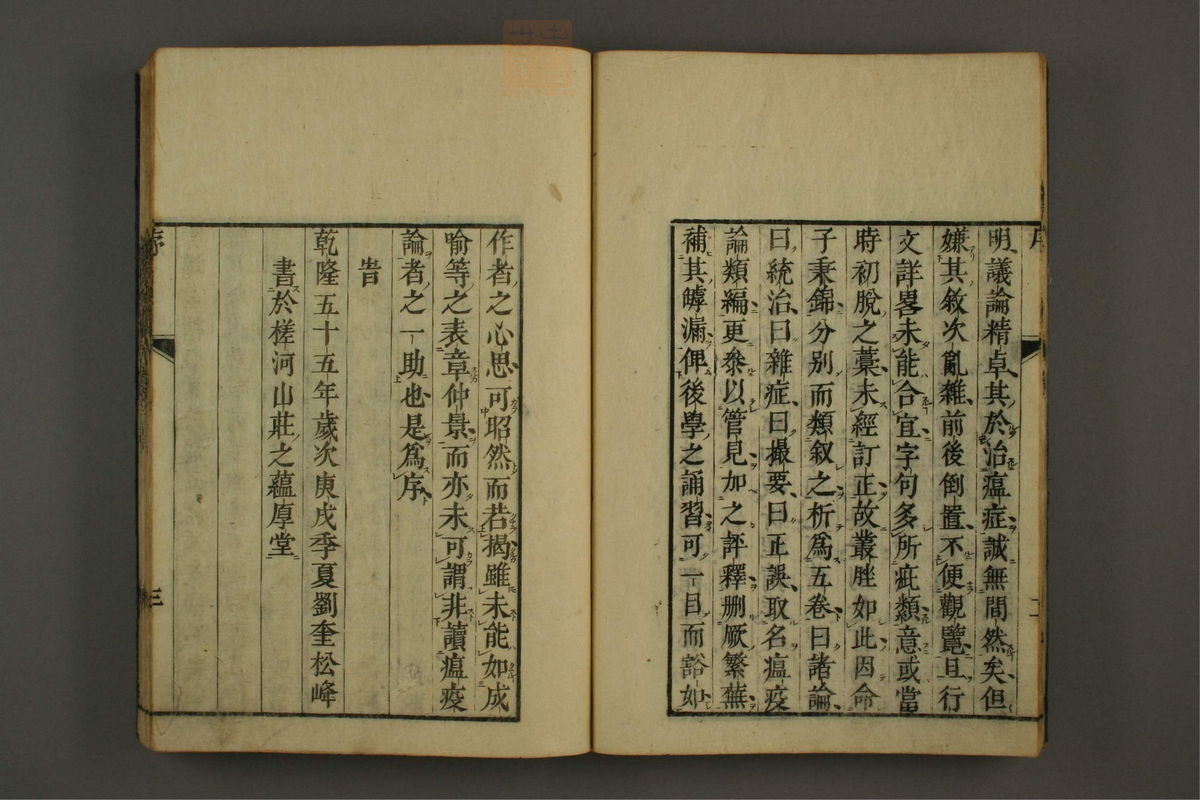 明議論精卓其於治瘟症誠無間然矣但
嫌其敘次亂雜前後倒置不便觀覽且行
文詳畧未能合宜字句多所疵纇意或當
時初脫之藁未經訂正故叢脞如此因命
子秉錦分別而類叙之析爲五卷曰諸論
曰統治曰雜症曰撮要曰正誤取名瘟疫
論類編更叅以管見加之評釋刪厥繁蕪
補其罅漏俾後學之誦習可一目而豁如
序
二
作者之心思可昭然而若揭雖未能如成
喻等之表章仲景而亦未可謂非讀瘟疫
論者之一助也是爲序
旹
乾隆五十五年歲次庚戌季夏劉奎松峰
書於槎河山莊之蘊厚堂
序
三